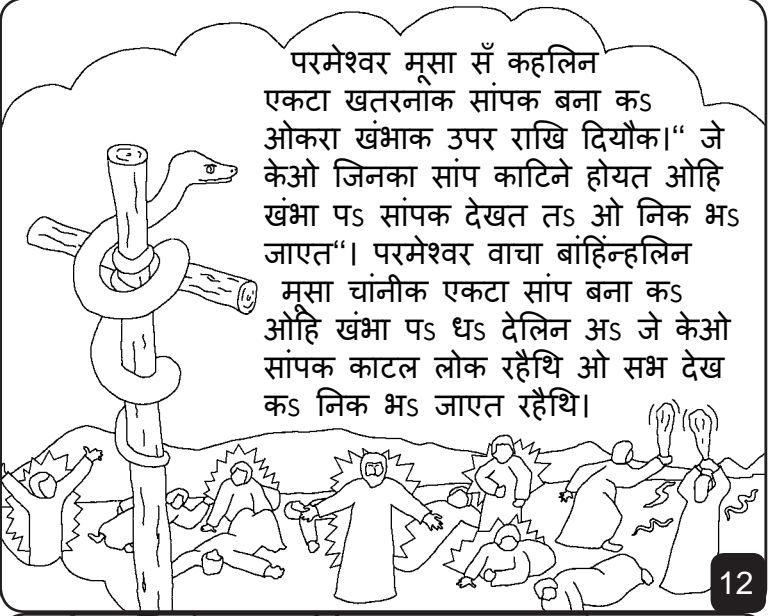 परमेश्वर मूसा सँ कहलिन
एकटा खतरनाक सांपक बना कऽ
ओकरा खंभाक उपर राखि दियौक।“ जे
केओ जिनका सांप काटिने होयत ओहि
खंभा पऽ सांपक देखत तऽ ओ निक भऽ
जाएत“। परमेश्वर वाचा बांहिंन्हलिन
मूसा चांनीक एकटा सांप बना कऽ
ओहि खंभा पऽ धऽ देलिन अऽ जे केओ
सांपक काटल लोक रहैथि ओ सभ देख
कऽ निक भऽ जाएत रहैथि।
12